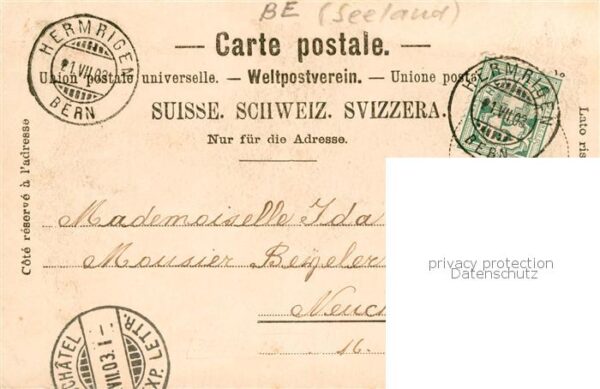 BE (Seeland)
HERMRIGEN
21.VII.03
BERN
— Carte postale. —
Union postale universelle. — Weltpostverein. — Unione posta
HERMRIGEN
21.VII.03
BERN
SUISSE. SCHWEIZ. SVIZZERA.
Nur für die Adresse.
Côté réservé à l'adresse
Lato ris
Mademoiselle Ida
Monsier Beyeler
Neuc
16.
privacy protection
Datenschutz
CHÂTEL
VII.03. I-
XP. LETTR.